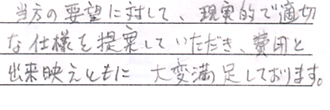 当方の要望に対して、現実的で適切
な仕様を提案していただき、費用と
出来映えともに 大変満足しております。